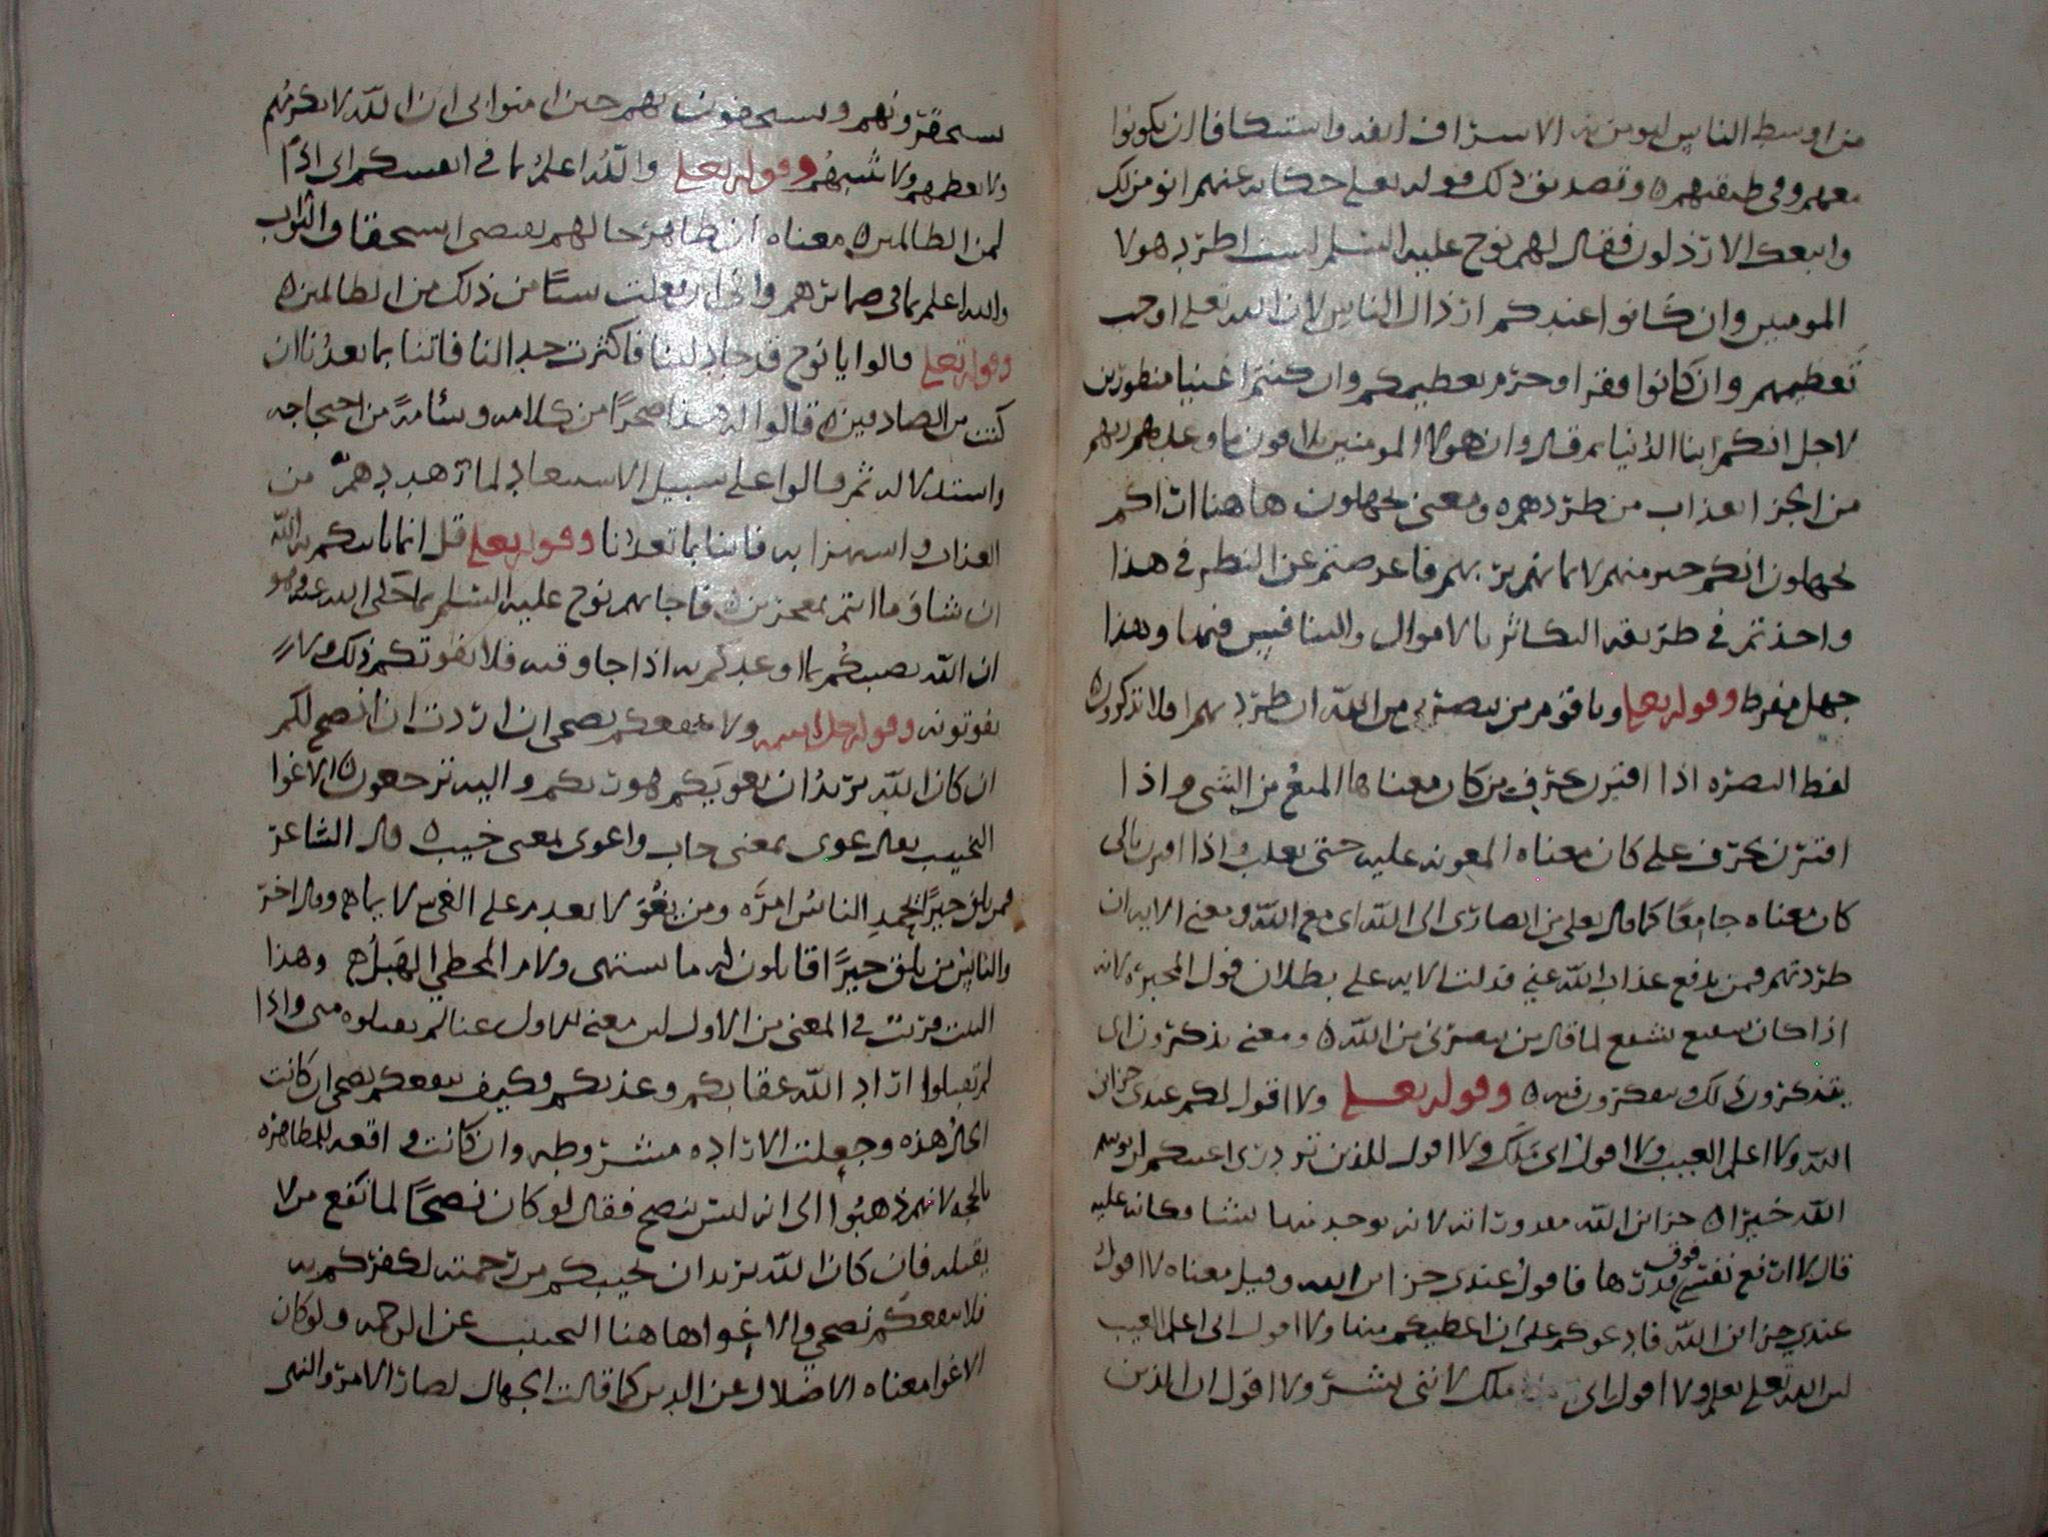 من اوسط الناس ليومن به الاسراف انفه واستنكافا ان يكونوا
معهم وفي طبقتهم ه وتصديق ذلك قوله تعلى حكاية عنهم انومن لك
واتبعك الارذلون فقال لهم نوح عليه السلم لست اطرد هولا
المومنين وان كانوا عندكم ارذال الناس لان الله تعلى اوجب
تعظيمهم وان كانوا فقرا وحرم تعظيمكم وان كنتم اغنيا منظورين
لاجل انكم ابنا الدنيا ثم قال وان هولا المومنين ملاقون ما وعدهم ربهم
من العذاب من طردهم ه ومعنى تجهلون هاهنا اراكم
تجهلون انكم خير منهم لايمانهم بربهم فاعرضتم عن النظر في هذا
واخذتم في طريقه التكاثر بالاموال والتنافس فيها وهذا
جهل مفرط وقوله تعلى ويا قوم من ينصرني من الله ان طردتهم افلا تذكرون ه
لفظ النصره اذا اقترن بحرف من كان معناها المنع من الشي واذا
اقترن بحرف على كان معناه المعونه عليه حتى يغلب واذا اقترن بالى
كان معناه جامعا كما قال تعلى من انصاري الى الله اى مع الله ومعنى الايه ان
طردتهم فمن يدفع عذاب الله عني فدلت الايه على بطلان قول المجبره لانه
اذا كان شفيع يشفع لما قال من ينصرني من الله ه ومعنى تذكرون اى
تتذكرون ذلك وتتفكرون فيه ه وقوله تعلى ولا اقول لكم عندى خزاين
الله ولا اعلم الغيب ولا اقول انى ملك ولا اقول للذين تزدرى اعينكم لن يوتيهم
الله خيرا ه خزاين الله مقدوراته لانه يوجد منها ما يشا وكانه عليه
قال لا ارفع نفسي فوق قدرها فاقول عندى خزاين الله وقيل معناه لا اقول
عندي خزاين الله فادعوكم على ان اعطيكم منها ولا اقول انى اعلم الغيب
ولا اقول انى ملك لاننى بشر ولا اقول ان الذين
تستحقرونهم وتستخفون بهم حين امنوا بى ان الله لا يكرمهم
ولا يعظمهم ولا يثيبهم وقوله تعلى والله اعلم بما في انفسكم انى اذا
لمن الظالمين ه معناه ان ظاهر حالهم يقتضى استحقاق الثواب
والله اعلم بما في ضمايرهم وانى ان فعلت شيئا من ذلك من الظالمين ه
وقوله تعلى قالوا يا نوح قد جادلتنا فاكثرت جدالنا فاتنا بما تعدنا ان
كنت من الصادقين ه قالوا له هذا ضجرا من كلامه وسئامة من احتجاجه
واستدلاله ثم قالوا على سبيل الاستبعاد لما تهددهم من
العذاب واستهزا به فاتنا بما تعدنا وقوله تعلى قل انما ياتيكم به الله
ان شا وما انتم بمعجزين ه فاجابهم نوح عليه السلم بما حكى الله عنه وهو
ان الله يصيبكم بما اوعدكم به اذا جا وقته فلا يفوتكم ذلك ولا
تفوتونه وقوله جل اسمه ولا ينفعكم نصحى ان اردت ان انصح لكم
ان كان الله يريد ان يغويكم هو ربكم واليه ترجعون ه الاغوا
التخييب يقال غوى بمعنى خاب واغوى بمعنى خيب ه قال الشاعر
فمن يلق خيرا يحمد الناس امره ومن يغو لا يعدم على الغي لايما ه وقال اخر
والناس من يلق خيرا قايلون له ما يشتهى ولام المخطى الهبل ه وهذا
البيت قريب في المعنى من الاول لم تقبلوه منى واذا
لم تقبلوا اراد الله عقابكم وعذبكم وكيف ينفعكم نصحى ان كانت
الحال هذه وجعلت الاراده مشروطه وان كانت واقعه للمظاهره
بالحجه لانهم ذهبوا الى انه ليس بنصح فقال لو كان نصحا لما نفع من لا
يقبله فان كان الله يريد ان يخيبكم من رحمته لكفركم به
فلا ينفعكم نصحي والاغوا هاهنا التخييب عن الرحمه ولو كان
الاغوا معناه الاضلال عن الدين كما قالت الجهال لصار الامر والنهى